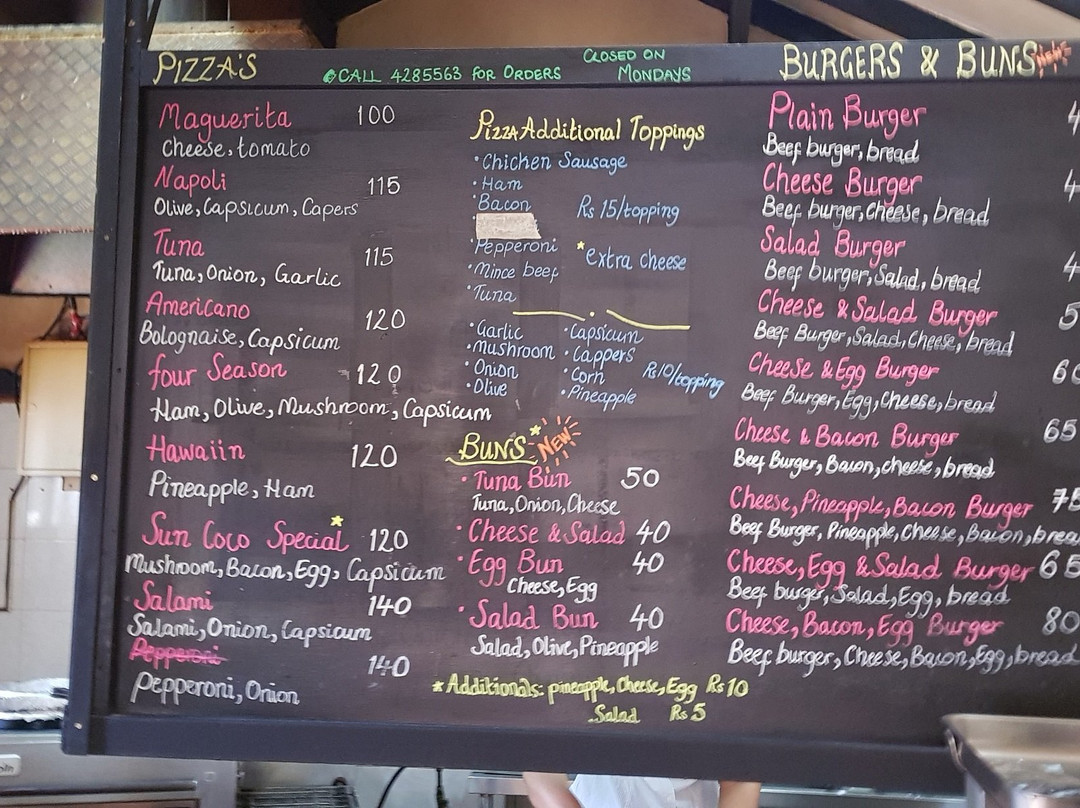 PIZZA'S
CALL 4285563 FOR ORDERS
CLOSED ON
MONDAYS
Maguerita 100
Cheese, tomato
Napoli 115
Olive, Capsicum, Capers
Tuna 115
Tuna, Onion, Garlic
Americano 120
Bolognaise, Capsicum
four Season 120
Ham, Olive, Mushroom, Capsicum
Hawaiin 120
Pineapple, Ham
Sun Coco Special 120
Mushroom, Bacon, Egg, Capsicum
Salami 140
Salami, Onion, Capsicum
Pepperoni 140
Pepperoni, Onion
Pizza Additional Toppings
• Chicken Sausage
• Ham
• Bacon
Rs 15/topping
• Pepperoni
*extra cheese
• Mince beef
• Tuna
• Garlic • Capsicum
• Mushroom • Cappers
• Onion • Corn
Rs10/topping
• Olive • Pineapple
BUN'S NEW
• Tuna Bun 50
Tuna, Onion, Cheese
• Cheese & Salad 40
• Egg Bun 40
Cheese, Egg
• Salad Bun 40
Salad, Olive, Pineapple
* Additionals: pineapple, Cheese, Egg Rs 10
Salad Rs 5
BURGERS & BUNS New
Plain Burger 4
Beef burger, bread
Cheese Burger 4
Beef burger, cheese, bread
Salad Burger 4
Beef burger, Salad, bread
Cheese & Salad Burger 5
Beef Burger, Salad, Cheese, bread
Cheese & Egg Burger 60
Beef Burger, Egg, Cheese, bread
Cheese & Bacon Burger 65
Beef Burger, Bacon, cheese, bread
Cheese, Pineapple, Bacon Burger 75
Beef Burger, Pineapple, Cheese, Bacon, brea
Cheese, Egg & Salad Burger 65
Beef burger, Salad, Egg, bread
Cheese, Bacon, Egg Burger 80
Beef burger, Cheese, Bacon, Egg, bread